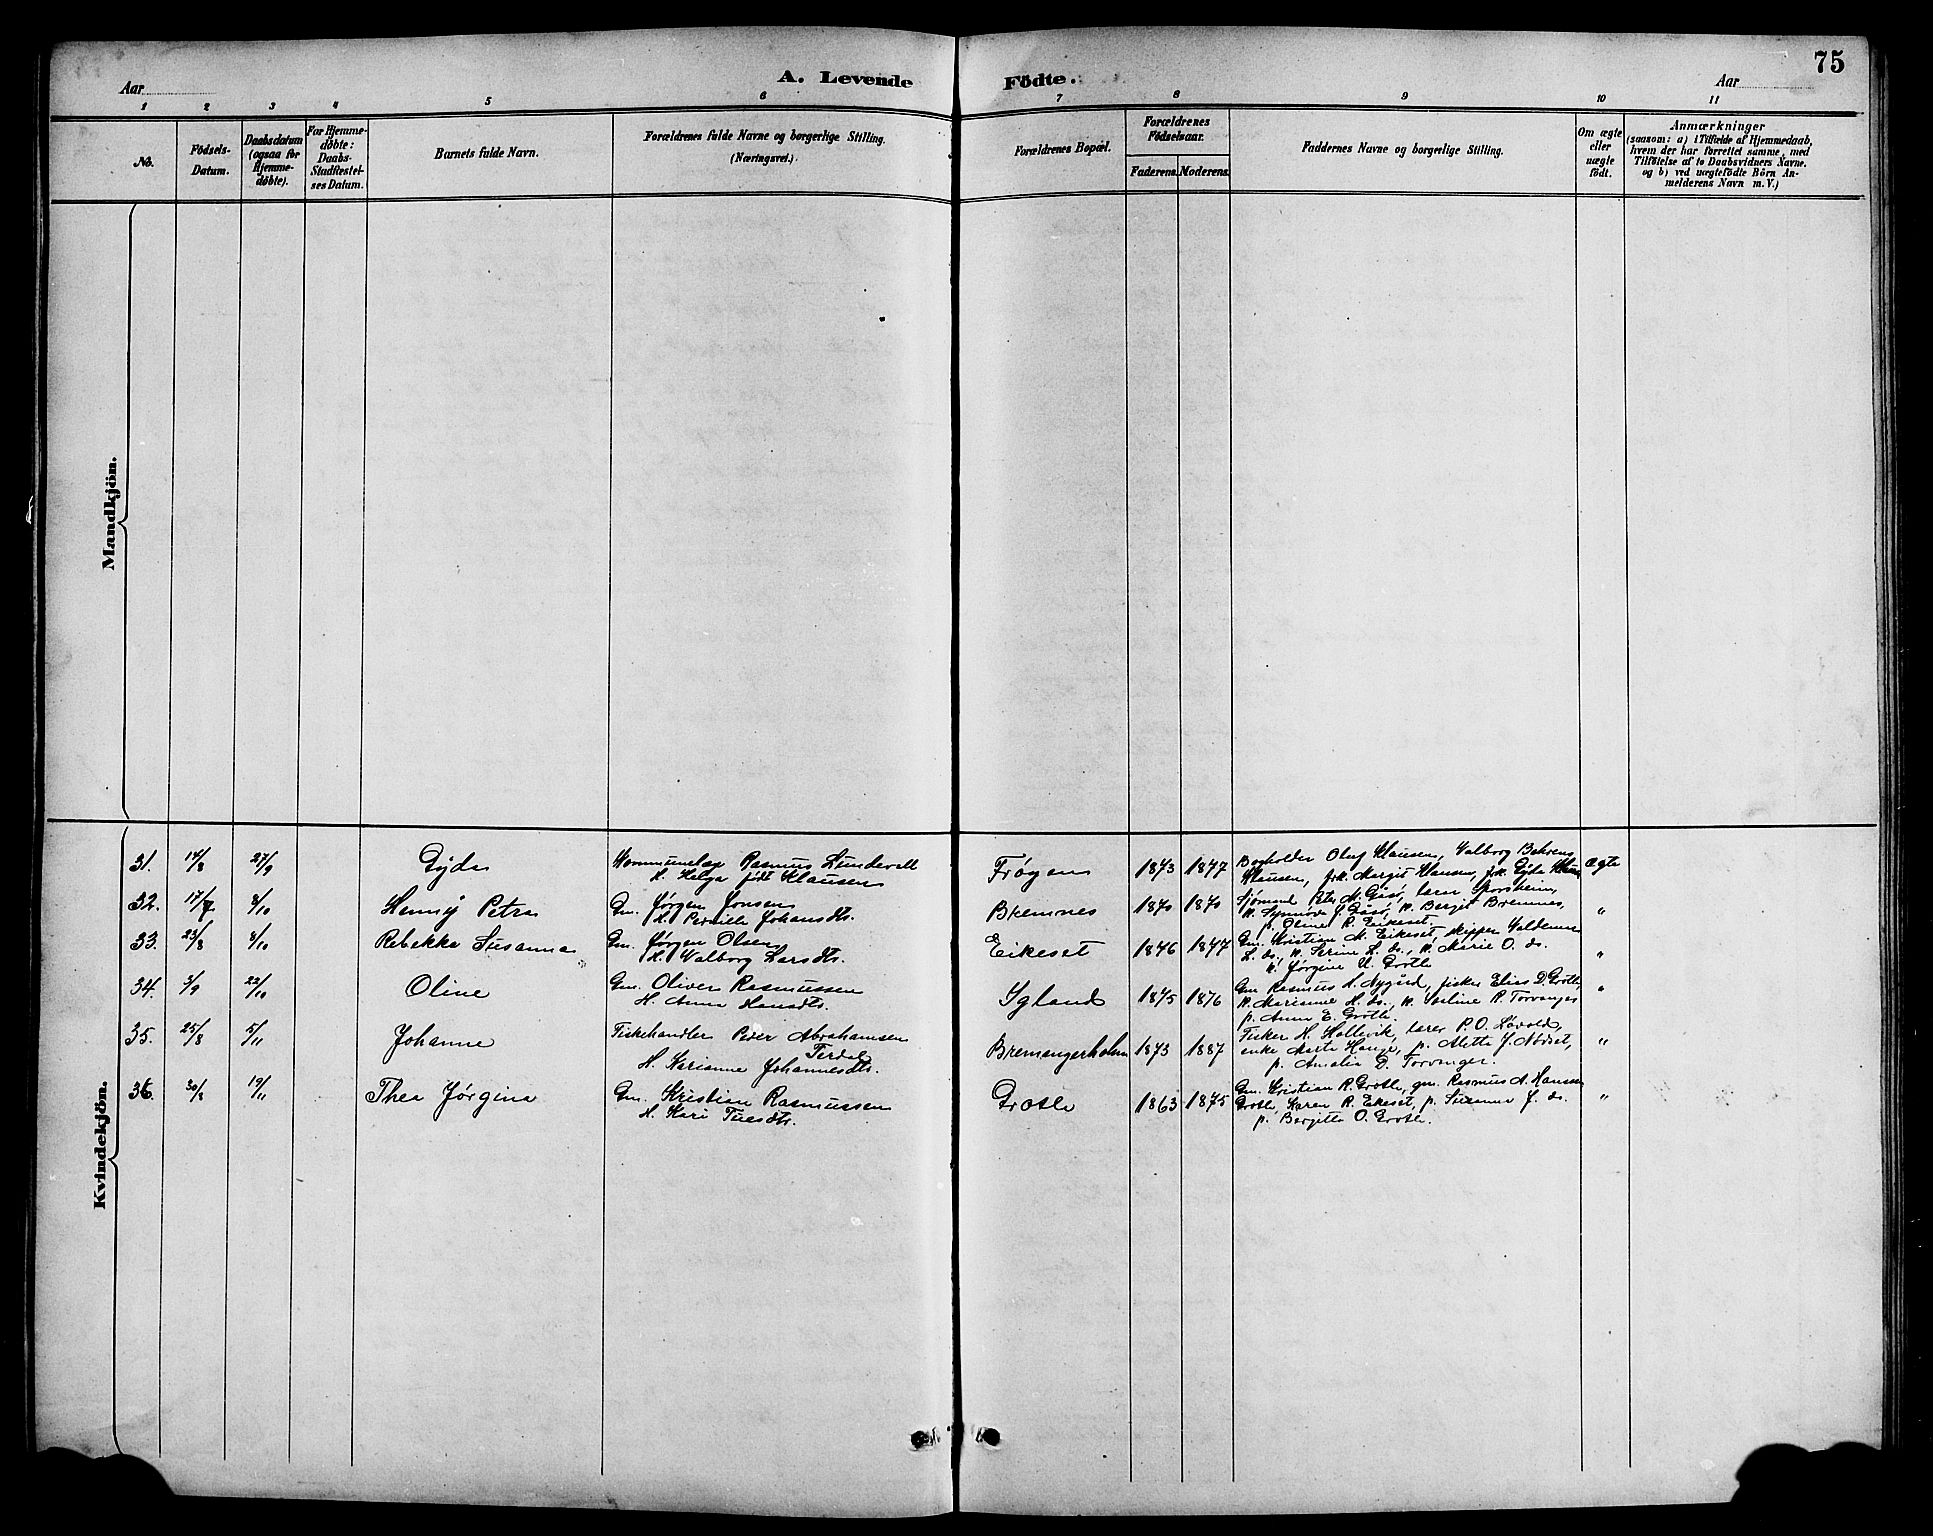 75
A. Levende Födte.
Aar
Aar
1 2 3 4 5 6 7 8 9 10 11
No.
Födsels-Datum.
Daabsdatum (ogsaa for Hjemme-döbte).
For Hjemme-döbte: Daabs-Stadfæstel-ses Datum.
Barnets fulde Navn.
Forældrenes fulde Navne og borgerlige Stilling.
(Næringsvei.)
Forældrenes Bopæl.
Forældrenes Födselsaar.
Faderens. Moderens.
Faddernes Navne og borgerlige Stilling.
Om ægte eller uægte födt.
Anmærkninger
(saasom: a) i Tilfælde af Hjemmedaab,
hvem der har forrettet samme, med
Tilföielse af to Daabsvidners Navne.
og b) ved uægtefödte Börn An-
melderens Navn m. V.)
Mandkjön.
Kvindekjön.
31. 14/8 27/9 Gyda Kommunelæge Rasmus Lundevall
H. Helga født Klausen
Frøyen 1873 1877 Bogholder Oluf Klausen, Valborg Behrens
Klausen, frk. Margit Klausen, frk. Gyda Ægte
32. 17/7 4/10 Henny Petra Gm. Jørgen Jonsen
H. Pernille Johansdtr.
Bremnes 1870 1870 Sjømand Peter M. Gåsø, lærer
k. Synnøve J. Gåsø, k. Bergit Bremnes,
p. Oline R. Eikeset. "
33. 23/8 4/10 Rebekka Susanna Gm. Jørgen Olsen
H. Valborg Larsdtr.
Eikeset 1846 1847 Gm. Kristian M. Eikeset, skipper
L. ds., k. Serine L. ds., k. Marie O. ds.
k. Jørgine K. Grotle "
34. 3/9 22/10 Oline Gm. Oliver Rasmussen
H. Anna Hansdtr.
Igland 1875 1876 Gm Rasmus A. Nygård, fisker Elias D. Grotle,
k. Marianne H. ds., k. R. Torvanger
p. Anna E. Grotle. "
35. 25/8 5/11 Johanne Fiskehandler Peder Abrahamsen
Terdal
H. Karianne Johannesdtr.
Bremangerholm 1873 1887 Fisker H. Hallevik, lærer P. O. Løvold,
enke Marta Hauge, p. Alette J. Nødset,
p. Amalia D. Torvanger. "
36. 30/8 19/11 Thea Jørgina Gm. Kristian Rasmussen
H. Kari Tuesdtr.
Grotle 1863 1875 Gm. Kristian R. Grotle, gm. Rasmus A. Hansen
Grotle, Karen R. Eikeset, p. Susanna J. ds.
p. Bergitte O. Grotle. "